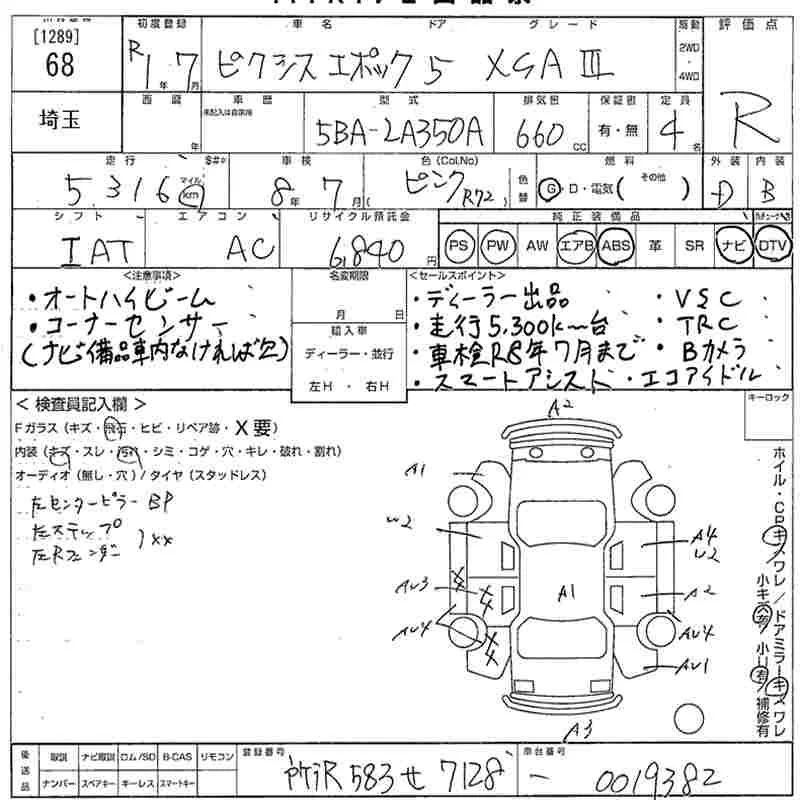 [1289]
68
初度登録
車名
ドア
グレード
駆動
評価点
R1年7月
ピクシスエポック 5 XGAⅢ
2WD
・
4WD
R
埼玉
西暦
年
車歴
未記入は自家用
型式
5BA-LA350A
排気量
660 CC
保証書
有・無
定員
4名
走行
5,316
マイル
km
車検
8年7月
色(Col.No)
ピンク R72
色替
燃料
G・D・電気( その他 )
外装
D
内装
B
シフト
IAT
エアコン
AC
リサイクル預託金
6,840円
純正装備品
PS PW AW エアB ABS 革 SR ナビ DTV
<注意事項>
・オートハイビーム
・コーナーセンサー
(ナビ備品車内なければ欠)
名変期限
月 日
輸入車
ディーラー・並行
左H ・ 右H
<セールスポイント>
・ディーラー出品 ・VSC
・走行5,300k〜台 ・TRC
・車検R8年7月まで ・Bカメラ
・スマートアシスト ・エコアイドル
<検査員記入欄>
Fガラス(キズ・飛石・ヒビ・リペア跡・X要)
内装(キズ・スレ・汚れ・シミ・コゲ・穴・キレ・破れ・割れ)
オーディオ(無し・穴)/タイヤ(スタッドレス)
左センターピラーBP
左ステップ
左Rフェンダー
)xx
キーロック
A2
A1
W2
A4
W2
AU3
A2
A1
AU4
AU4
AU1
A3
ホイル・CPキズワレ/ドアミラーキズワレ
後送品
取説 ナビ取説 ロム/SD B-CAS リモコン
ナンバー スペアキー キーレス スマートキー
登録番号
所沢 583 せ 7128
車台番号
- 0019382